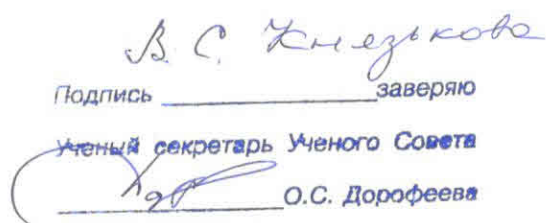 В. С. Князькова
Подпись ____________ заверяю
Ученый секретарь Ученого Совета
____________ О.С. Дорофеева